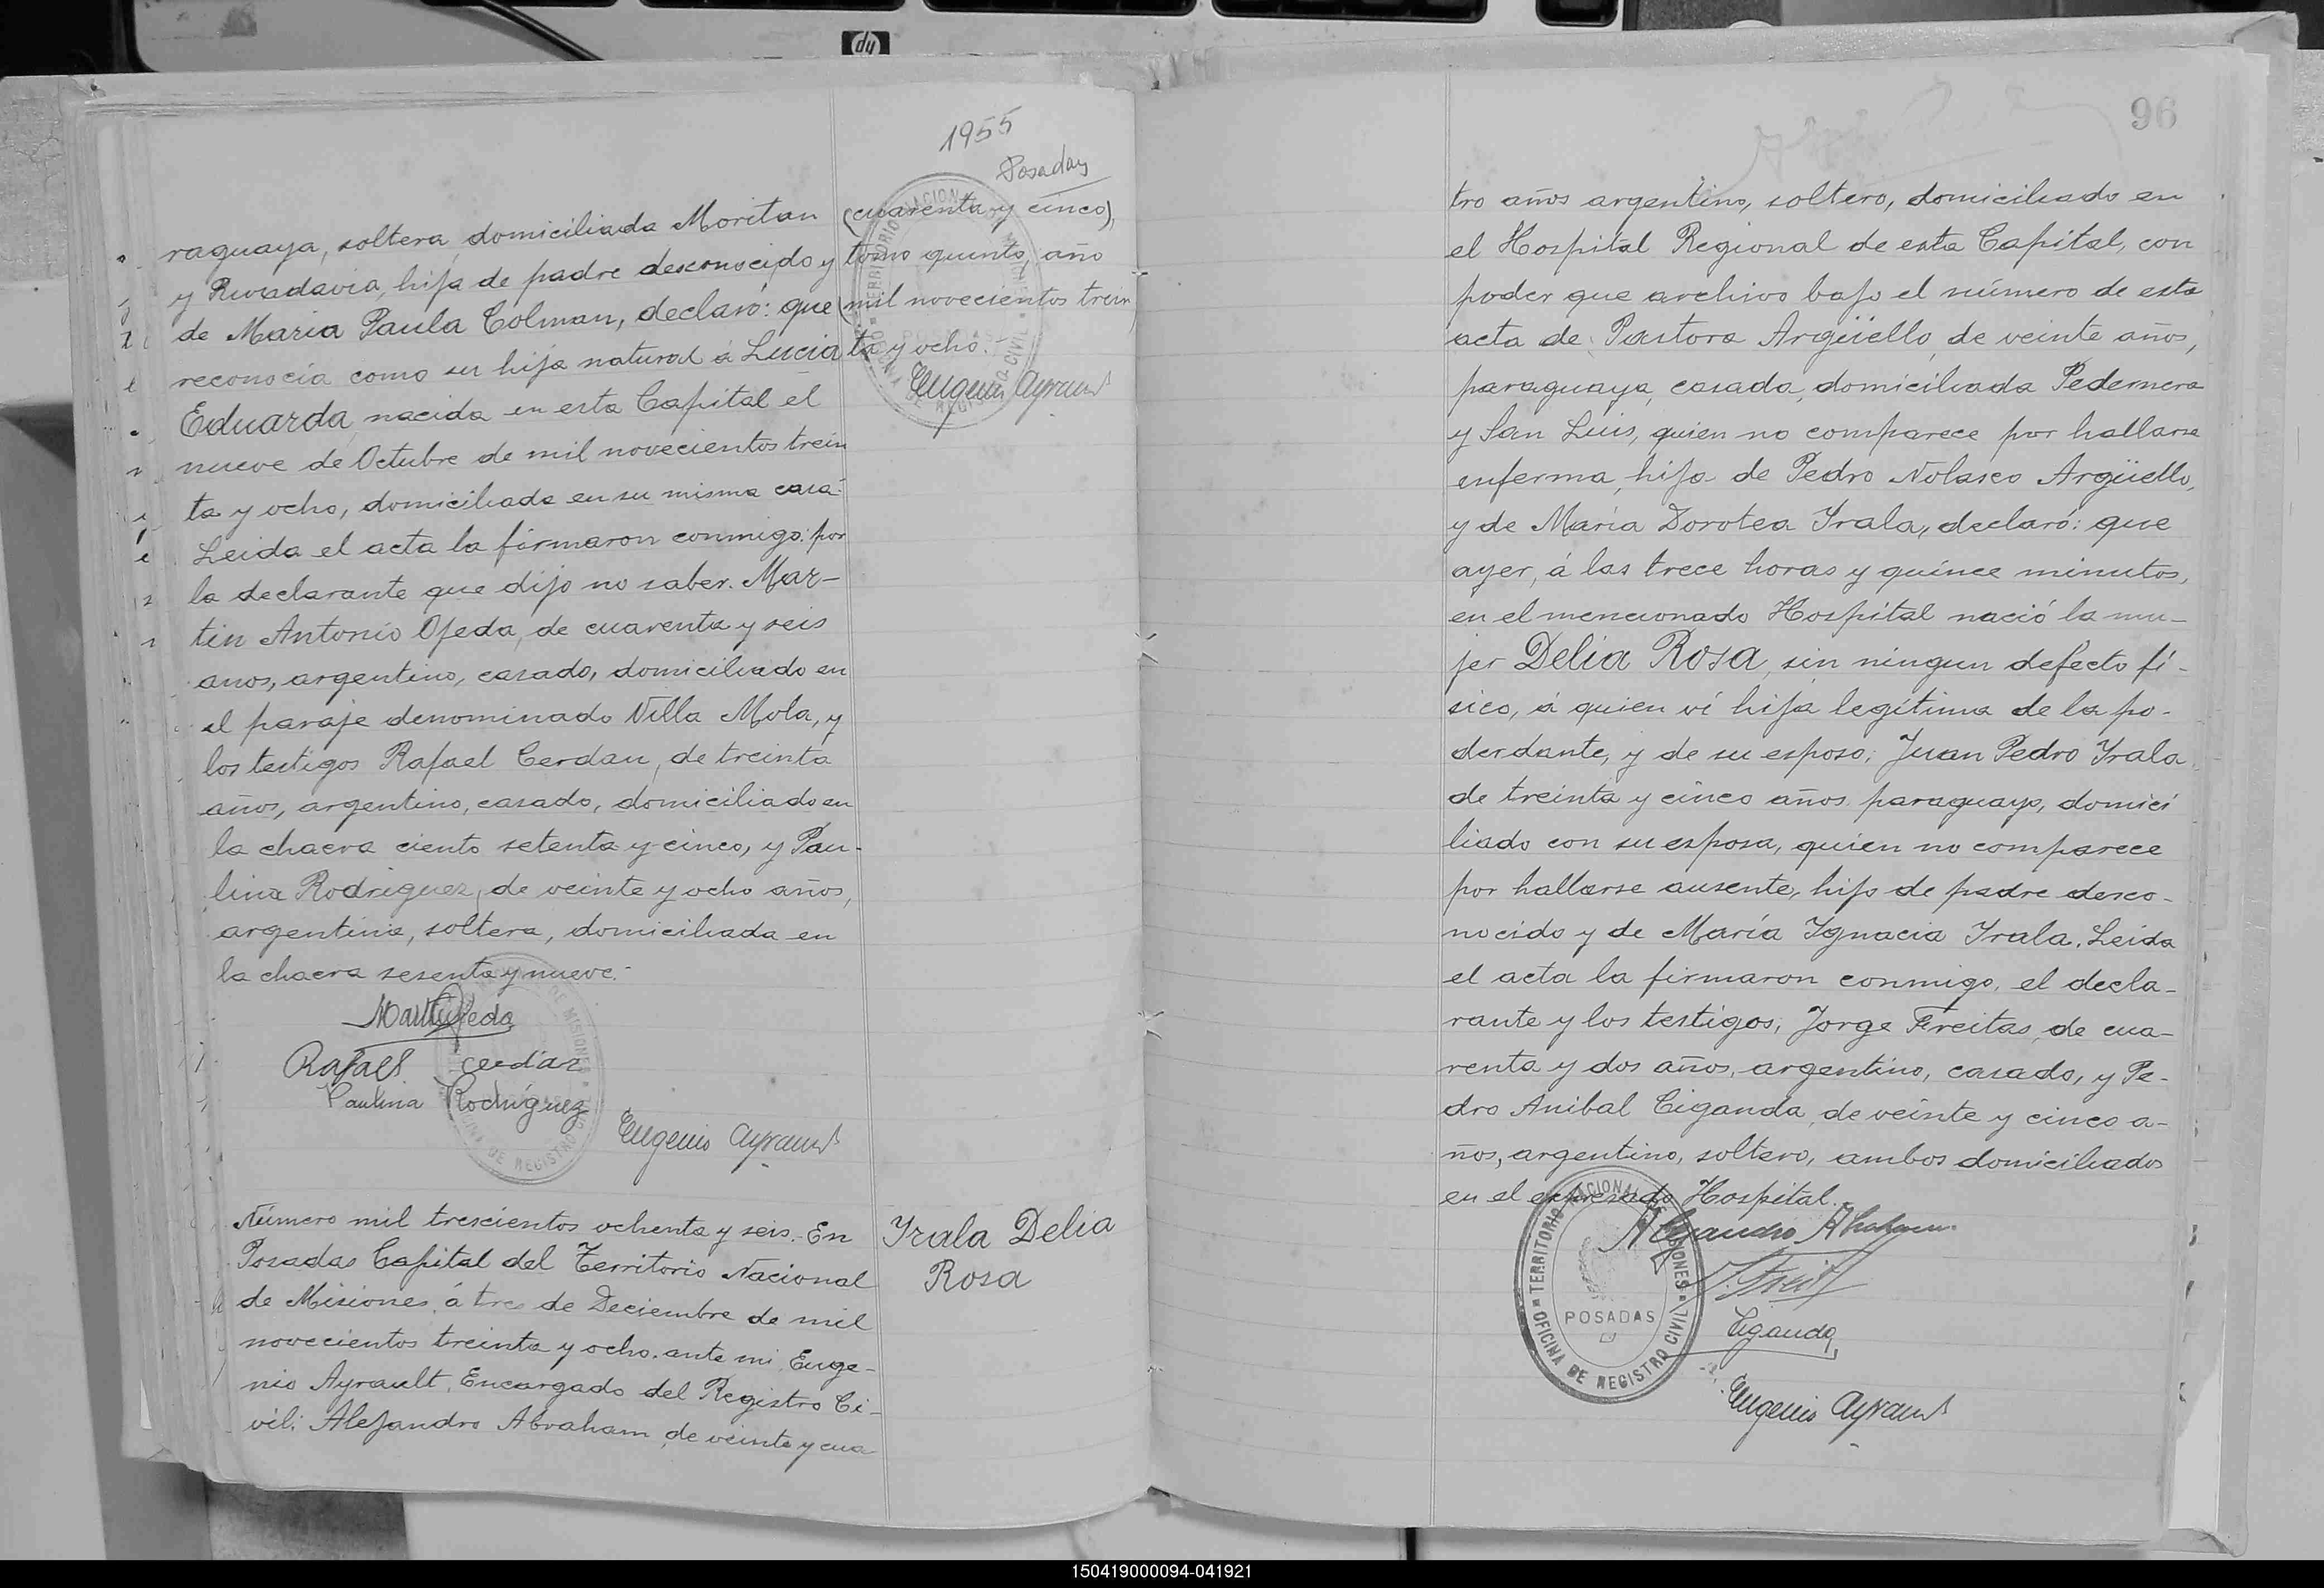 hp
1955
Posadas
raguaya, soltera, domiciliada Moritan
y Rivadavia, hija de padre desconocido y
de Maria Paula Colman, declaró: que
reconocia como su hija natural á Lucia
Eduarda, nacida en esta Capital el
nueve de Octubre de mil novecientos trein
ta y ocho, domiciliada en su misma casa.
Leida el acta la firmaron conmigo: por
la declarante que dijo no saber. Mar-
tin Antonio Ojeda, de cuarenta y seis
anos, argentino, casado, domiciliado en
el paraje denominado Villa Mola, y
los testigos Rafael Cerdan, de treinta
años, argentino, casado, domiciliado en
la chacra ciento setenta y cinco, y Pau-
lina Rodriguez, de veinte y ocho años,
argentina, soltera, domiciliada en
la chacra sesenta y nueve.-
(cuarenta y cinco),
tomo quinto, año
(mil novecientos trein
ta y ocho.
Eugenio Ayrault
TERRITORIO NACIONAL
OFICINA DE REGISTRO CIVIL
Rafael Cerdan
Paulina Rodríguez
DE MISIONES
DE REGISTRO
Eugenio Ayrault
Número mil trescientos ochenta y seis.- En
Posadas Capital del Territorio Nacional
de Misiones, á tres de Deciembre de mil
novecientos treinta y ocho. ante mi, Euge-
nio Ayrault, Encargado del Registro Ci-
vil: Alejandro Abraham, de veinte y cua
Yrala Delia
Rosa
96
tro años argentino, soltero, domiciliado en
el Hospital Regional de esta Capital, con
poder que archivo bajo el número de esta
acta de Pastora Argüello, de veinte años,
paraguaya, casada, domiciliada Pedernera
y San Luis, quien no comparece por hallarse
enferma, hija de Pedro Nolasco Argüello,
y de María Dorotea Yrala, declaró: que
ayer, á las trece horas y quince minutos,
en el mencionado Hospital nació la mu-
jer Delia Rosa, sin ningun defecto fí-
sico, á quien ví hija legítima de la po-
derdante, y de su esposo; Juan Pedro Yrala,
de treinta y cinco años, paraguayo, domici
liado con su esposa, quien no comparece
por hallarse ausente, hijo de padre desco-
nocido y de María Ygnacia Yrala. Leida
el acta la firmaron conmigo, el decla-
rante y los testigos, Jorge Freitas, de cua-
renta y dos años, argentino, casado, y Pe-
dro Anibal Ciganda, de veinte y cinco a-
ños, argentino, soltero, ambos domiciliados
en el expresado Hospital.
Alejandro Abraham
Ciganda
Eugenio Ayrault
TERRITORIO NACIONAL DE MISIONES
POSADAS
OFICINA DE REGISTRO CIVIL
150419000094-041921